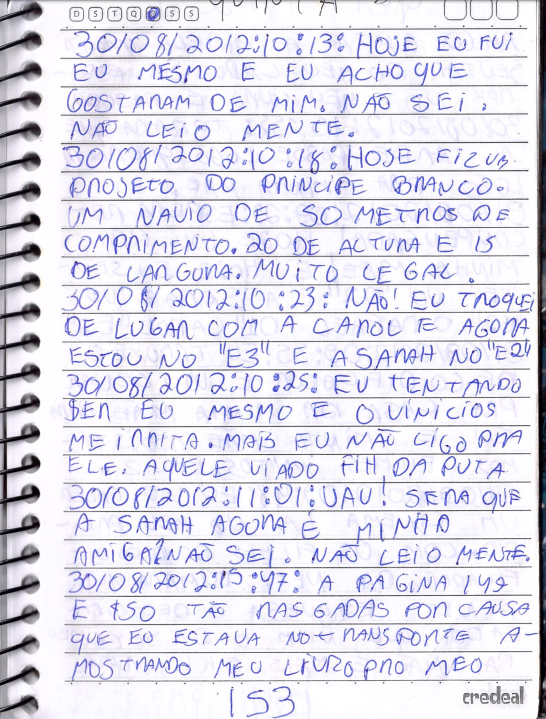 D S T Q Q S S
30/08/2012:10:13: HOJE EU FUI
EU MESMO E EU ACHO QUE
GOSTARAM DE MIM. NÃO SEI.
NÃO LEIO MENTE.
30/08/2012:10:18: HOJE FIZ UM
PROJETO DO PRINCIPE BRANCO.
UM NAVIO DE 50 METROS DE
COMPRIMENTO. 20 DE ACTURA E 15
DE LARGURA. MUITO LEGAL.
30/08/2012:10:23: NÃO! EU TROQUEI
DE LUGAR COM A CAROL E AGORA
ESTOU NO "E3" E A SARAH NO "E2"
30/08/2012:10:25: EU TENTANDO
SER EU MESMO E O VINICIOS
ME IRRITA. MAIS EU NÃO LIGO PRA
ELE. AQUELE VIADO FIH DA PUTA
30/08/2012:11:01: UAU! SERA QUE
A SARAH AGORA É MINHA
AMIGA? NÃO SEI. NÃO LEIO MENTE.
30/08/2012:15:47: A PAGINA 149
E 150 TÃO RASGADAS POR CAUSA
QUE EU ESTAVA NO TRANSPORTE A-
MOSTRANDO MEU LIVRO PRO MEO
153
credeal